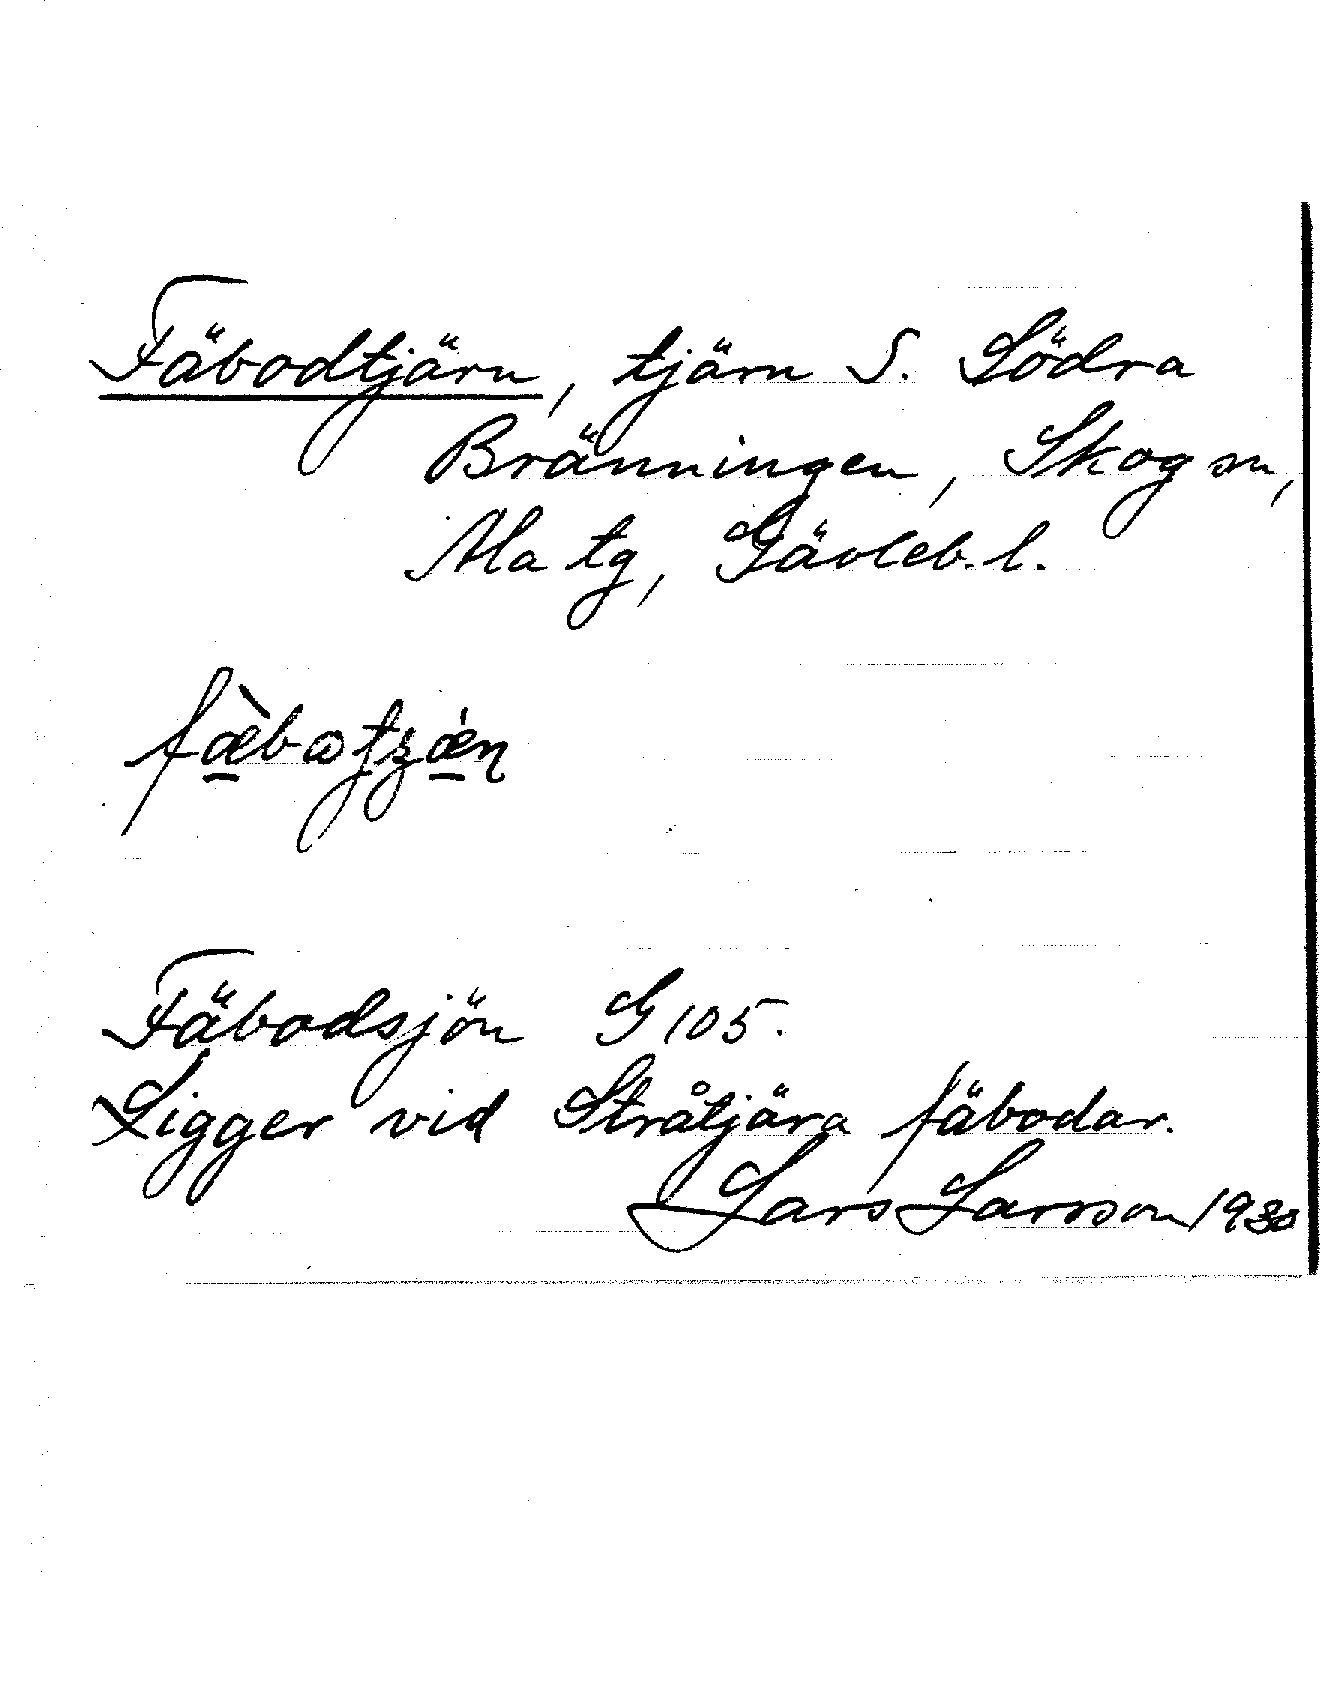 Fäbodtjärn, tjärn S. Södra
Bränningen, Skog sn,
Ala tg, Gävleb. l.
Fäbodsjön G 105.
Ligger vid Stråtjära fäbodar.
Lars Larsson 1930